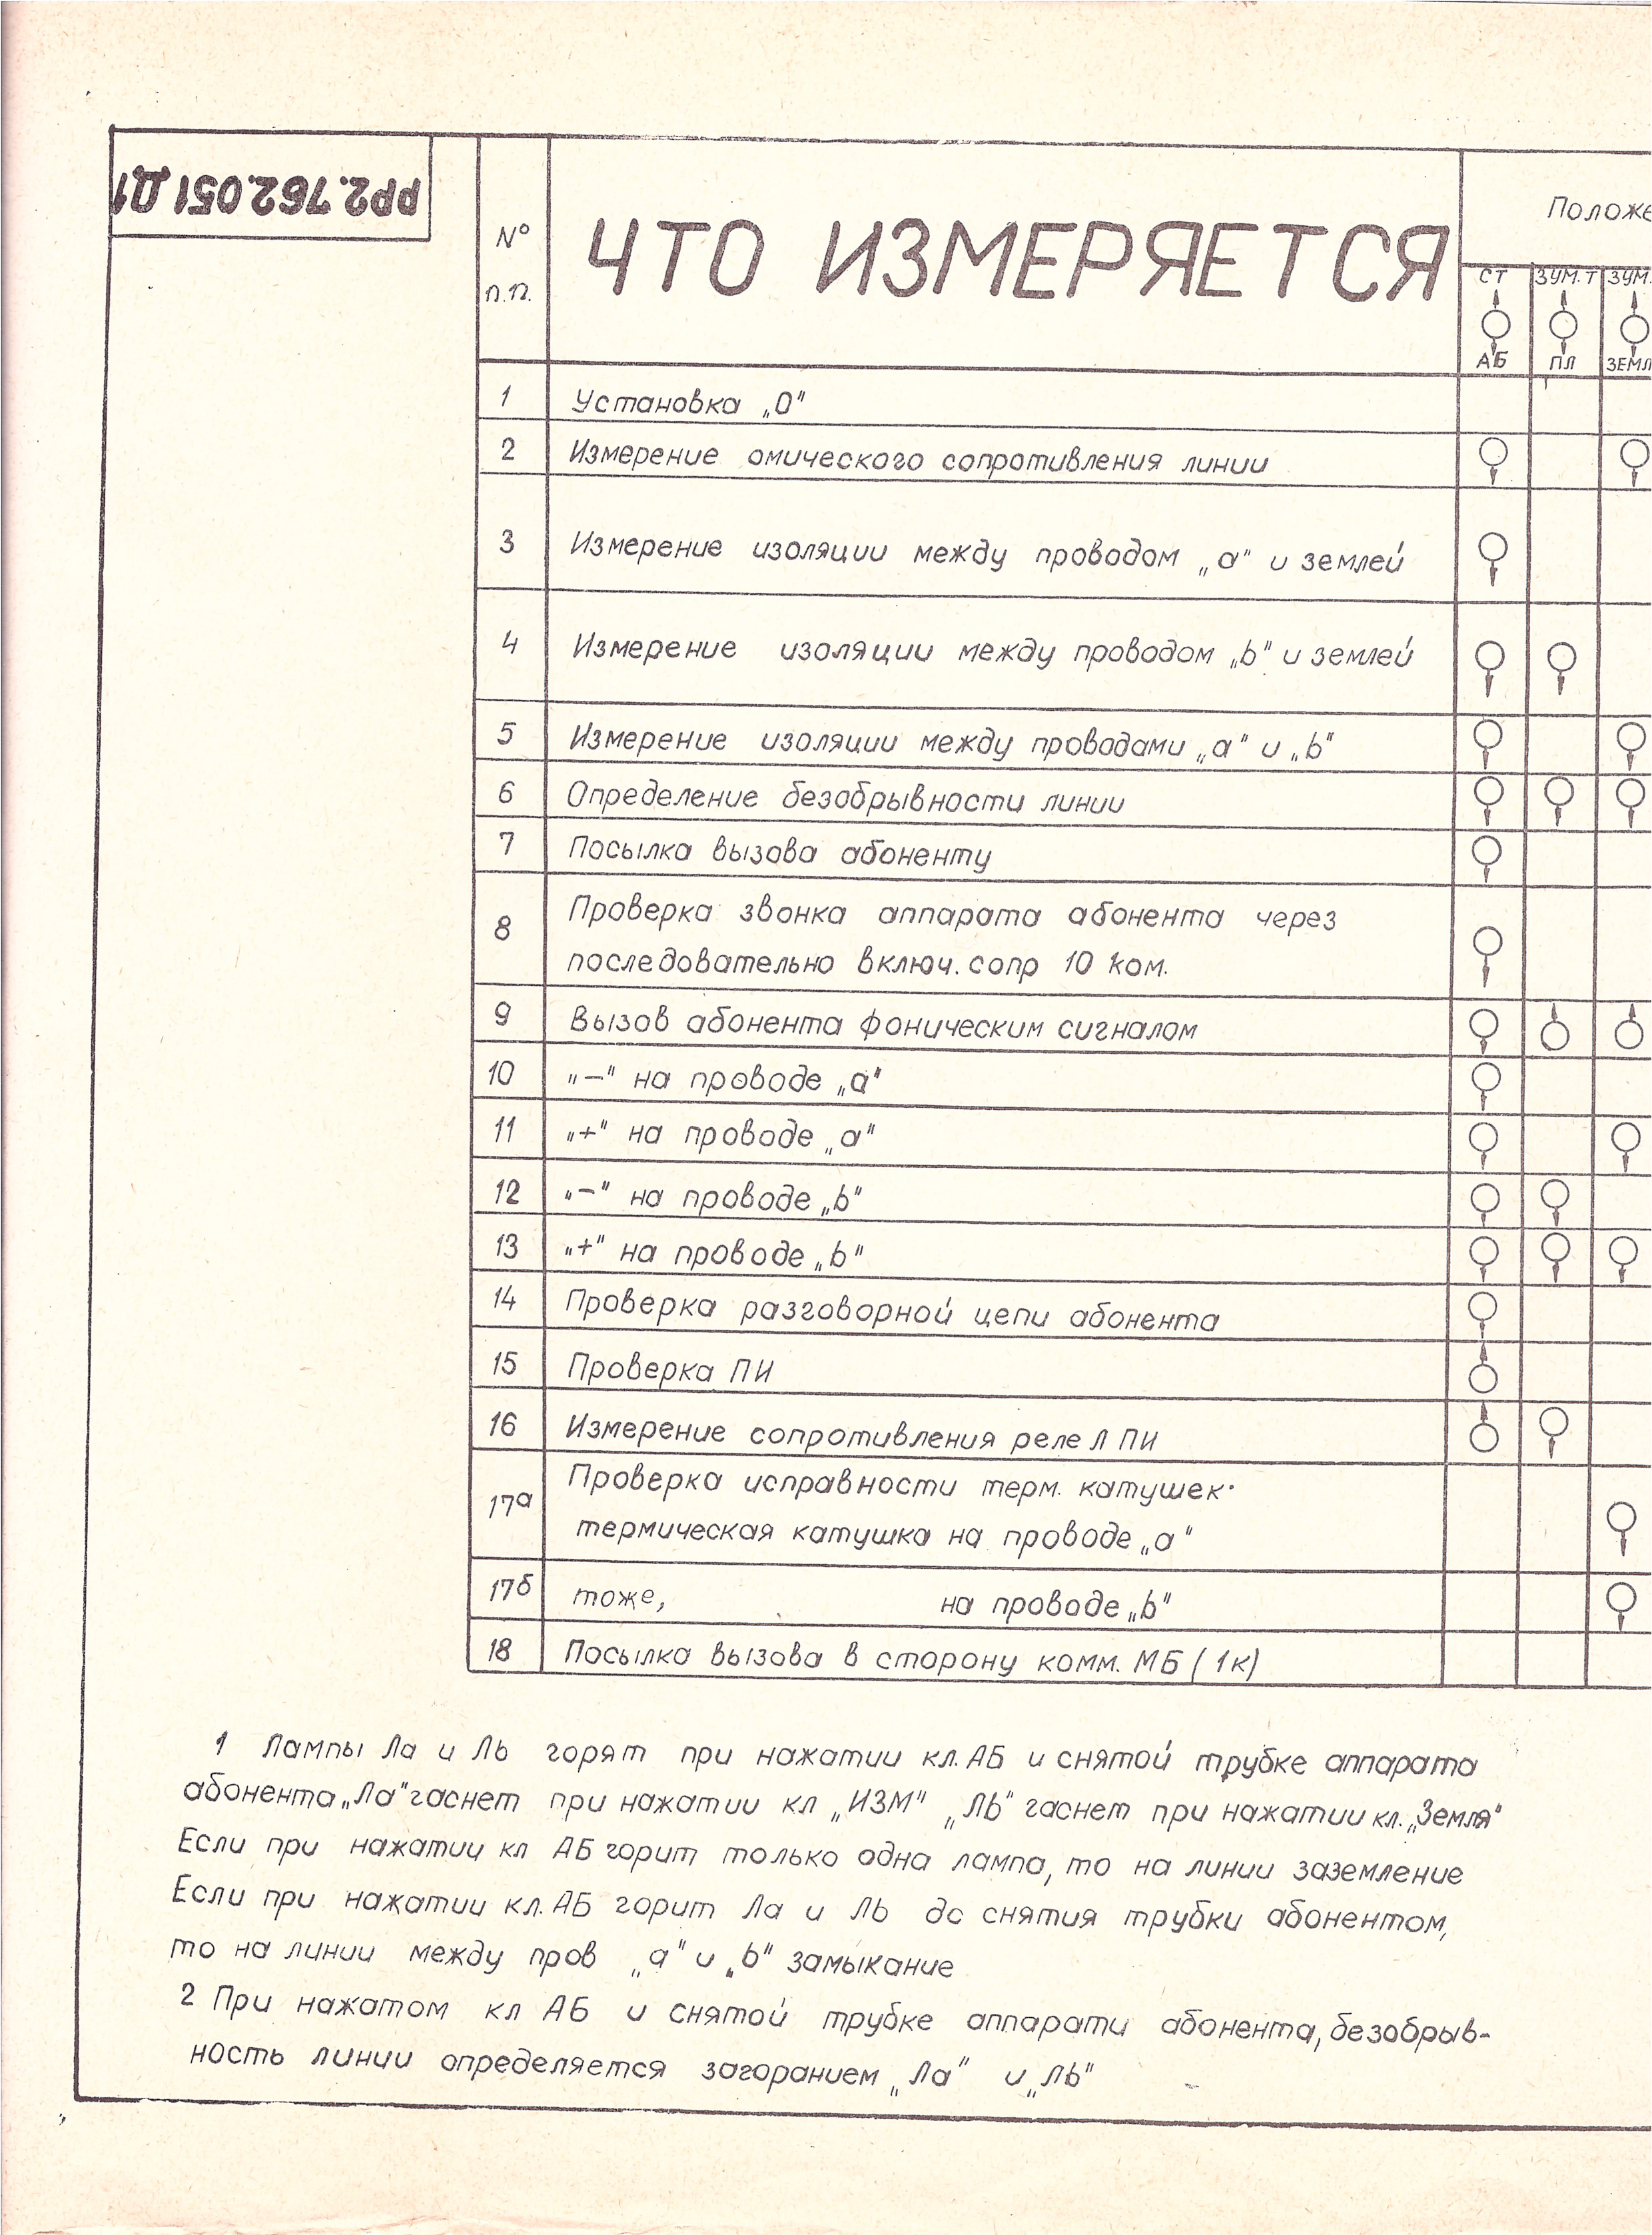 РР2.762.051 Д1
№
п.п.
ЧТО ИЗМЕРЯЕТСЯ
Положе
СТ ЗУМ.Т ЗУМ.
АБ ПЛ ЗЕМЛ
1 Установка „0"
2 Измерение омического сопротивления линии
3 Измерение изоляции между проводом „а" и землей
4 Измерение изоляции между проводом „b" и землей
5 Измерение изоляции между проводами „а" и „b"
6 Определение безобрывности линии
7 Посылка вызова абоненту
8 Проверка звонка аппарата абонента через
последовательно включ. сопр 10 ком.
9 Вызов абонента фоническим сигналом
10 „—" на проводе „а"
11 „+" на проводе „а"
12 „—" на проводе „b"
13 „+" на проводе „b"
14 Проверка разговорной цепи абонента
15 Проверка ПИ
16 Измерение сопротивления реле Л ПИ
17а Проверка исправности терм. катушек·
термическая катушка на проводе „а"
17б тоже, на проводе „b"
18 Посылка вызова в сторону комм. МБ (1к)
1 Лампы Ла и Лb горят при нажатии кл. АБ и снятой трубке аппарата
абонента „Ла" гаснет при нажатии кл „ИЗМ" „Лb" гаснет при нажатии кл. „Земля"
Если при нажатии кл АБ горит только одна лампа, то на линии заземление
Если при нажатии кл. АБ горит Ла и Лb до снятия трубки абонентом,
то на линии между пров „а" и „b" замыкание
2 При нажатом кл АБ и снятой трубке аппарати абонента, безобрыв-
ность линии определяется загоранием „Ла" и „Лb"